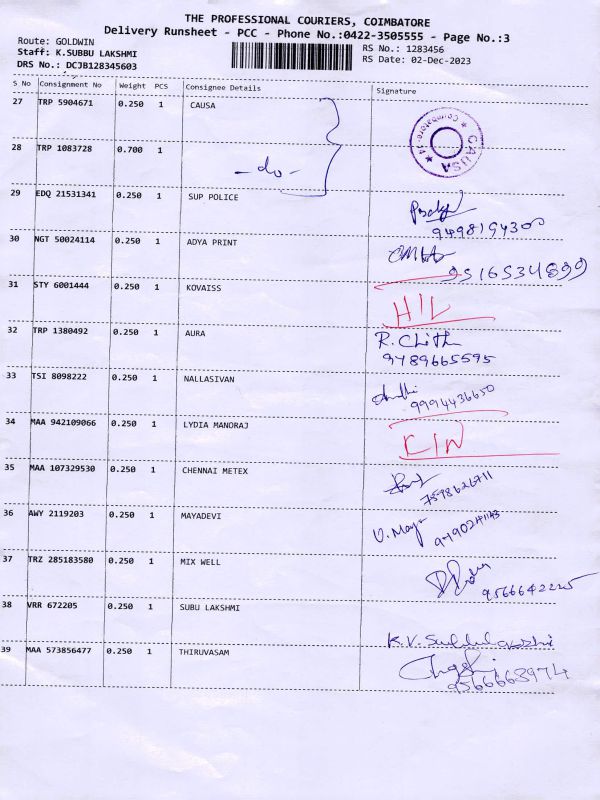 THE PROFESSIONAL COURIERS, COIMBATORE
Delivery Runsheet - PCC - Phone No.:0422-3505555 - Page No.:3
Route: GOLDWIN
Staff: K.SUBBU LAKSHMI
DRS No.: DCJB128345603
RS No.: 1283456
RS Date: 02-Dec-2023
S No Consignment No Weight PCS Consignee Details Signature
27 TRP 5904671 0.250 1 CAUSA
CAUSA
28 TRP 1083728 0.700 1 -do-
29 EDQ 21531341 0.250 1 SUP POLICE
9498194300
30 NGT 50024114 0.250 1 ADYA PRINT
9516534899
31 STY 6001444 0.250 1 KOVAISS
H/L
32 TRP 1380492 0.250 1 AURA R. Chith
9789665595
33 TSI 8098222 0.250 1 NALLASIVAN
9994436650
34 MAA 942109066 0.250 1 LYDIA MANORAJ
35 MAA 107329530 0.250 1 CHENNAI METEX
7598626711
36 AWY 2119203 0.250 1 MAYADEVI V. May
37 TRZ 285183580 0.250 1 MIX WELL
38 VRR 672205 0.250 1 SUBU LAKSHMI
K.V. Subbulakshmi
39 MAA 573856477 0.250 1 THIRUVASAM
9566668974